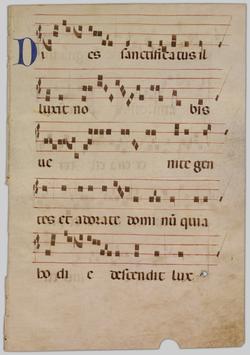 Di es sanctificatus il
luxit no bis
ue nite gen
tes et adorate domi nū quia
ho di e descendit lux